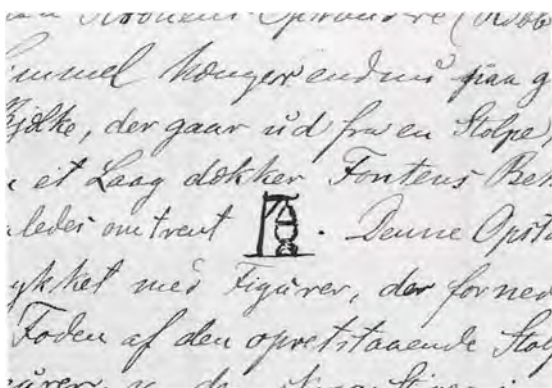 Opstandre (Kobb
himmel hænger endnu paa g
Bjælke, der gaar ud fra en Stolpe)
et Laag dækker Fontens Bek
ledes omtrent . Denne Opsta
ykket med Figurer, der forned
Foden af den opretstaaende Stolp